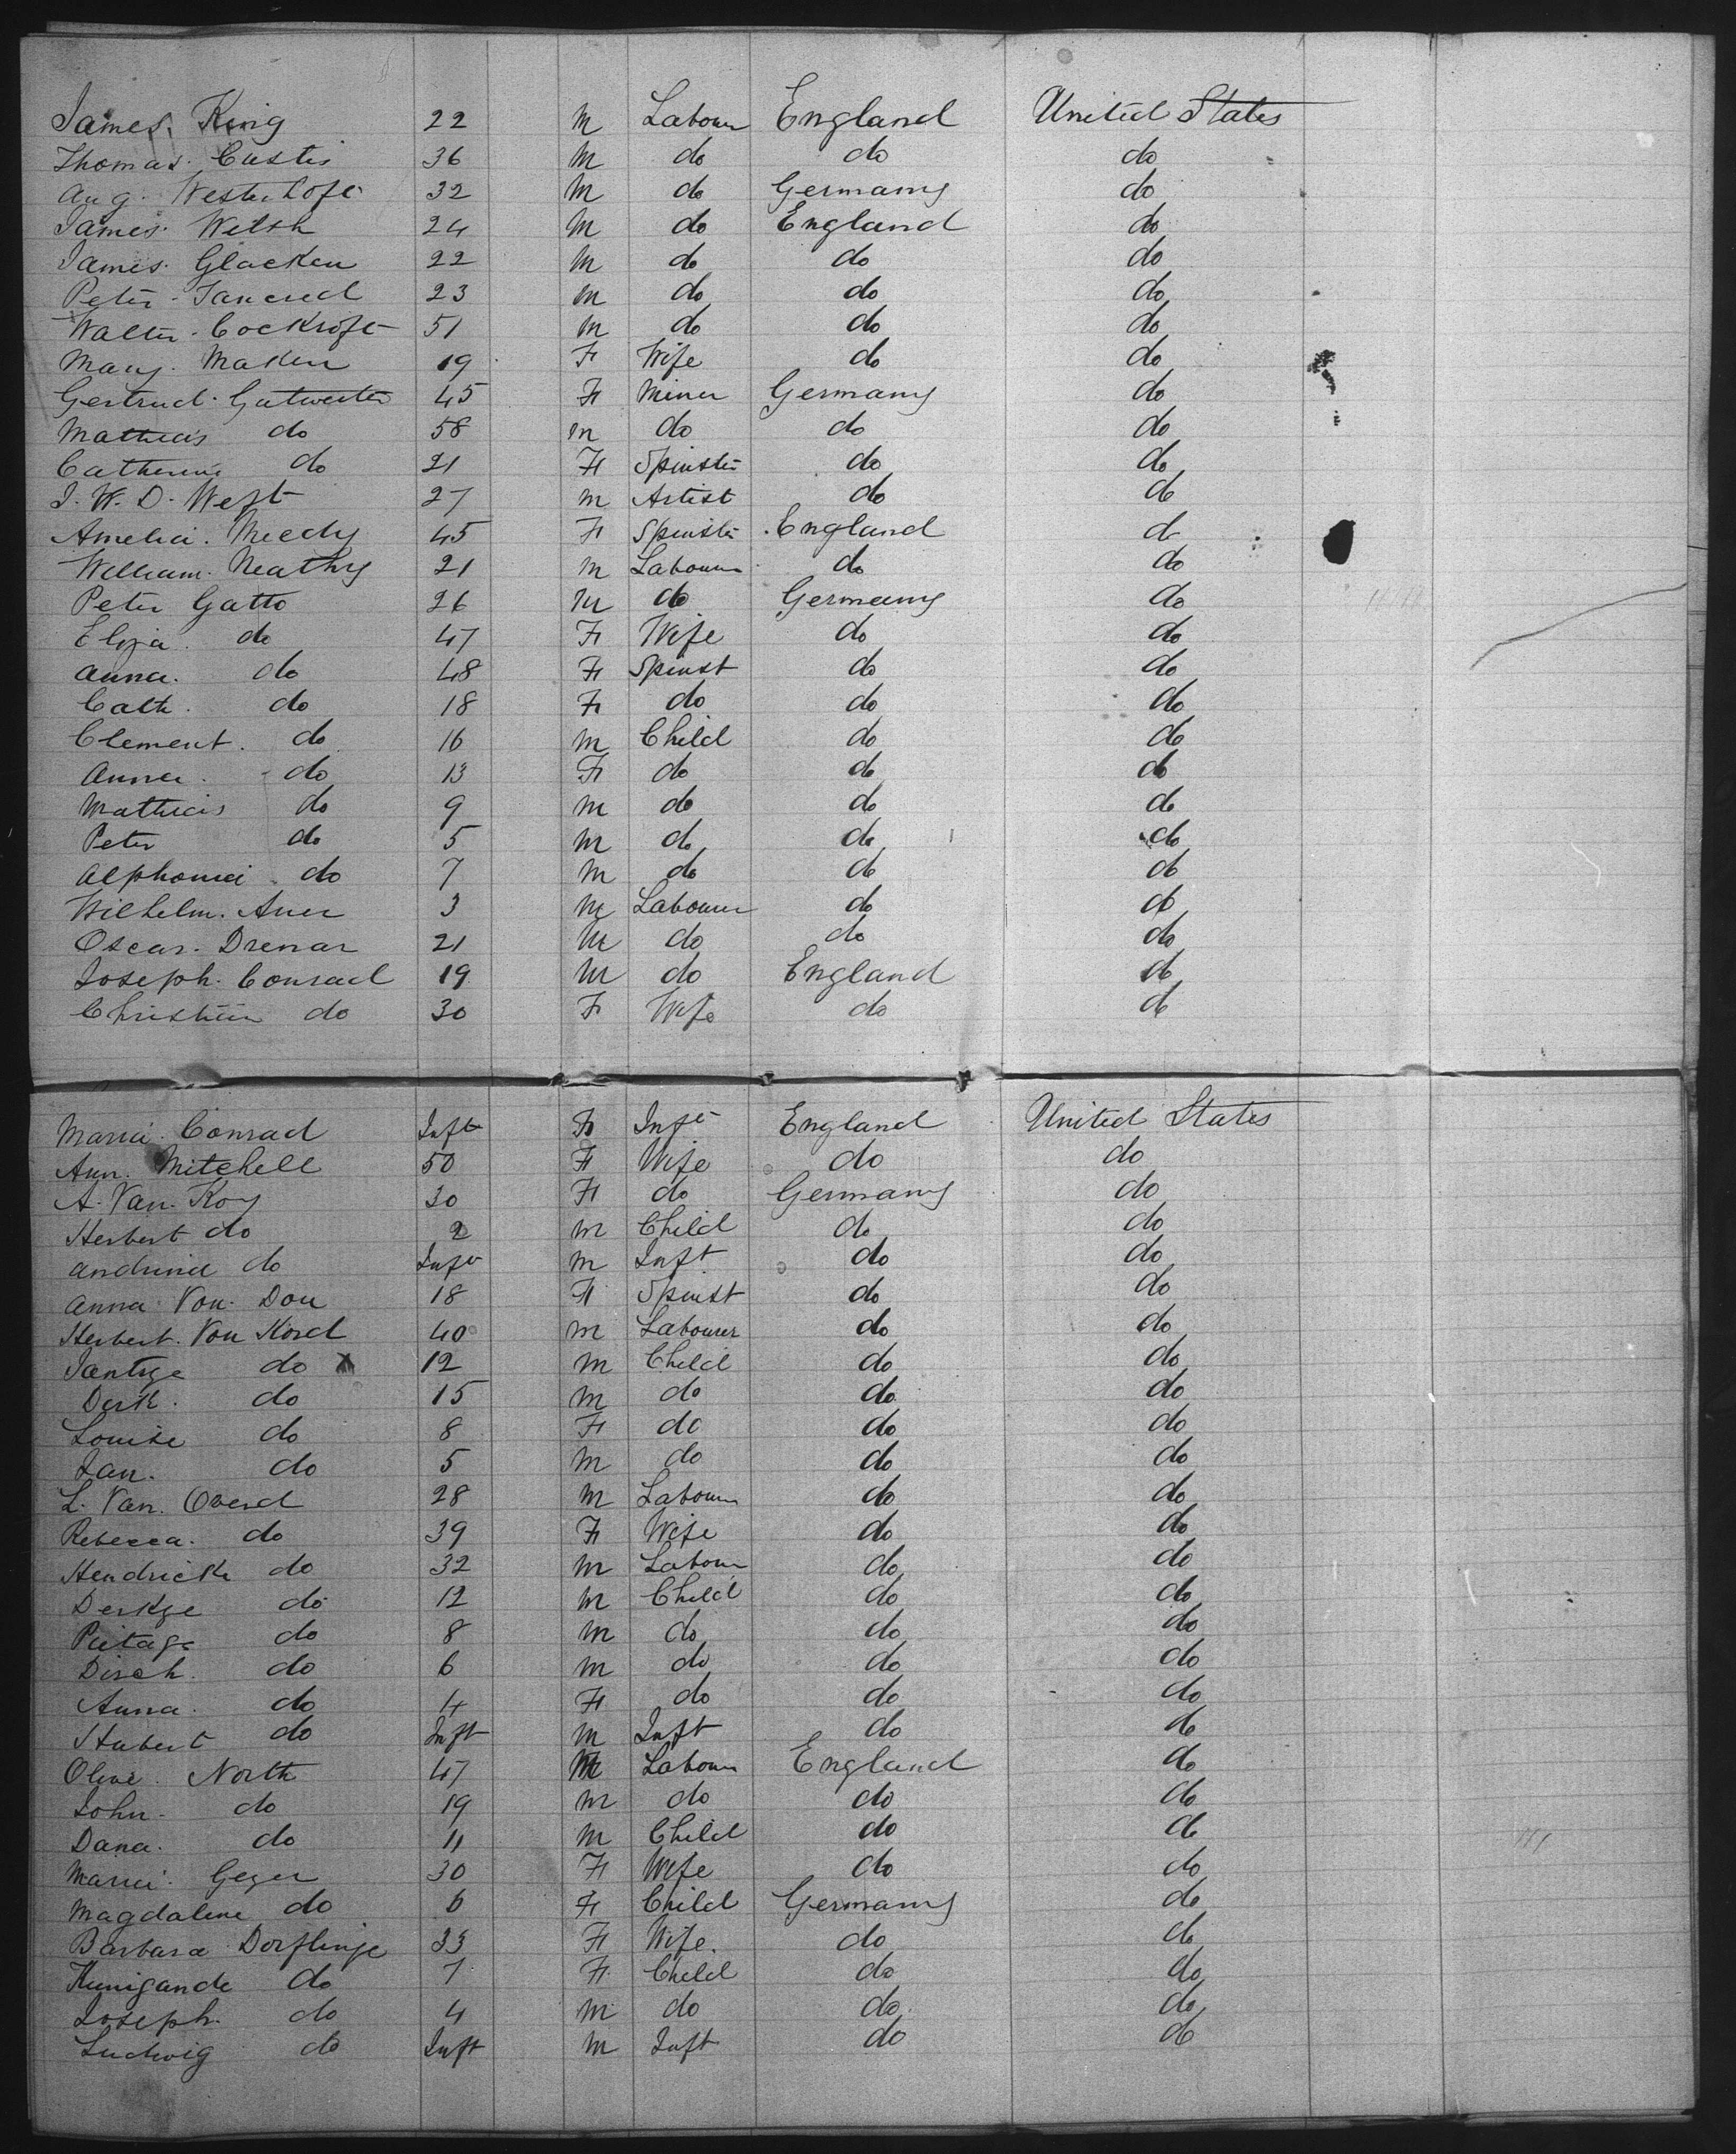 James. King 22 M Labour England United States
Thomas. Custis 36 M do do do
Aug. Westerhoft 32 M do Germany do
James. Welsh 24 M do England do
James. Glacken 22 M do do do
Peter. Tancred 23 M do do do
Walter. Cockroft 51 M do do do
Mary. Maken 19 F Wife do do
Gertrud. Gutwester 45 F Miner Germany do
Mathias do 58 M do do do
Catherine do 21 F Spinster do do
J. W. D. West 27 M Artist do do
Amelia. Meedy 45 F Spinster England do
William. Neathy 21 M Labourer do do
Peter Gatto 26 M do Germany do
Eliza. do 47 F Wife do do
Anna. do 48 F Spinst do do
Cath. do 18 F do do do
Clement. do 16 M Child do do
Anna. do 13 F do do do
Mathias do 9 M do do do
Peter do 5 M do do do
do 7 M do do do
Wilhelm. Auer 3 M Labourer do do
Oscar. Drenar 21 M do do do
Joseph. Conrad 19 M do England do
Christian do 30 F Wife do do
Maria. Conrad Inft F Inft England United States
Ann. Mitchell 50 F Wife do do
A. Van. Koy 30 F do Germany do
Herbert do 2 M Child do do
do Inft M Inft do do
Anna Von. Dou 18 F Spinst do do
Herbert. Von Kord 40 M Labourer do do
Jantge do x 12 M Child do do
Derk. do 15 M do do do
Louise do 8 F do do do
Jan. do 5 M do do do
L. Van. Overd 28 M Labour do do
Rebecca. do 39 F Wife do do
Hendrick do 32 M Labour do do
Derkge do 12 M Child do do
do 8 M do do do
Disch. do 6 M do do do
Anna. do 4 F do do do
Hubert do Inft M Inft do do
Olive. North 47 M Labour England do
John. do 19 M do do do
Dana. do 11 M Child do do
Maria. Geger 30 F Wife do do
Magdalene do 6 F Child Germany do
Barbara Dorflinge 33 F Wife. do do
Kunigande do 7 F Child do do
Joseph. do 4 M do do do
Ludwig do Inft M Inft do do